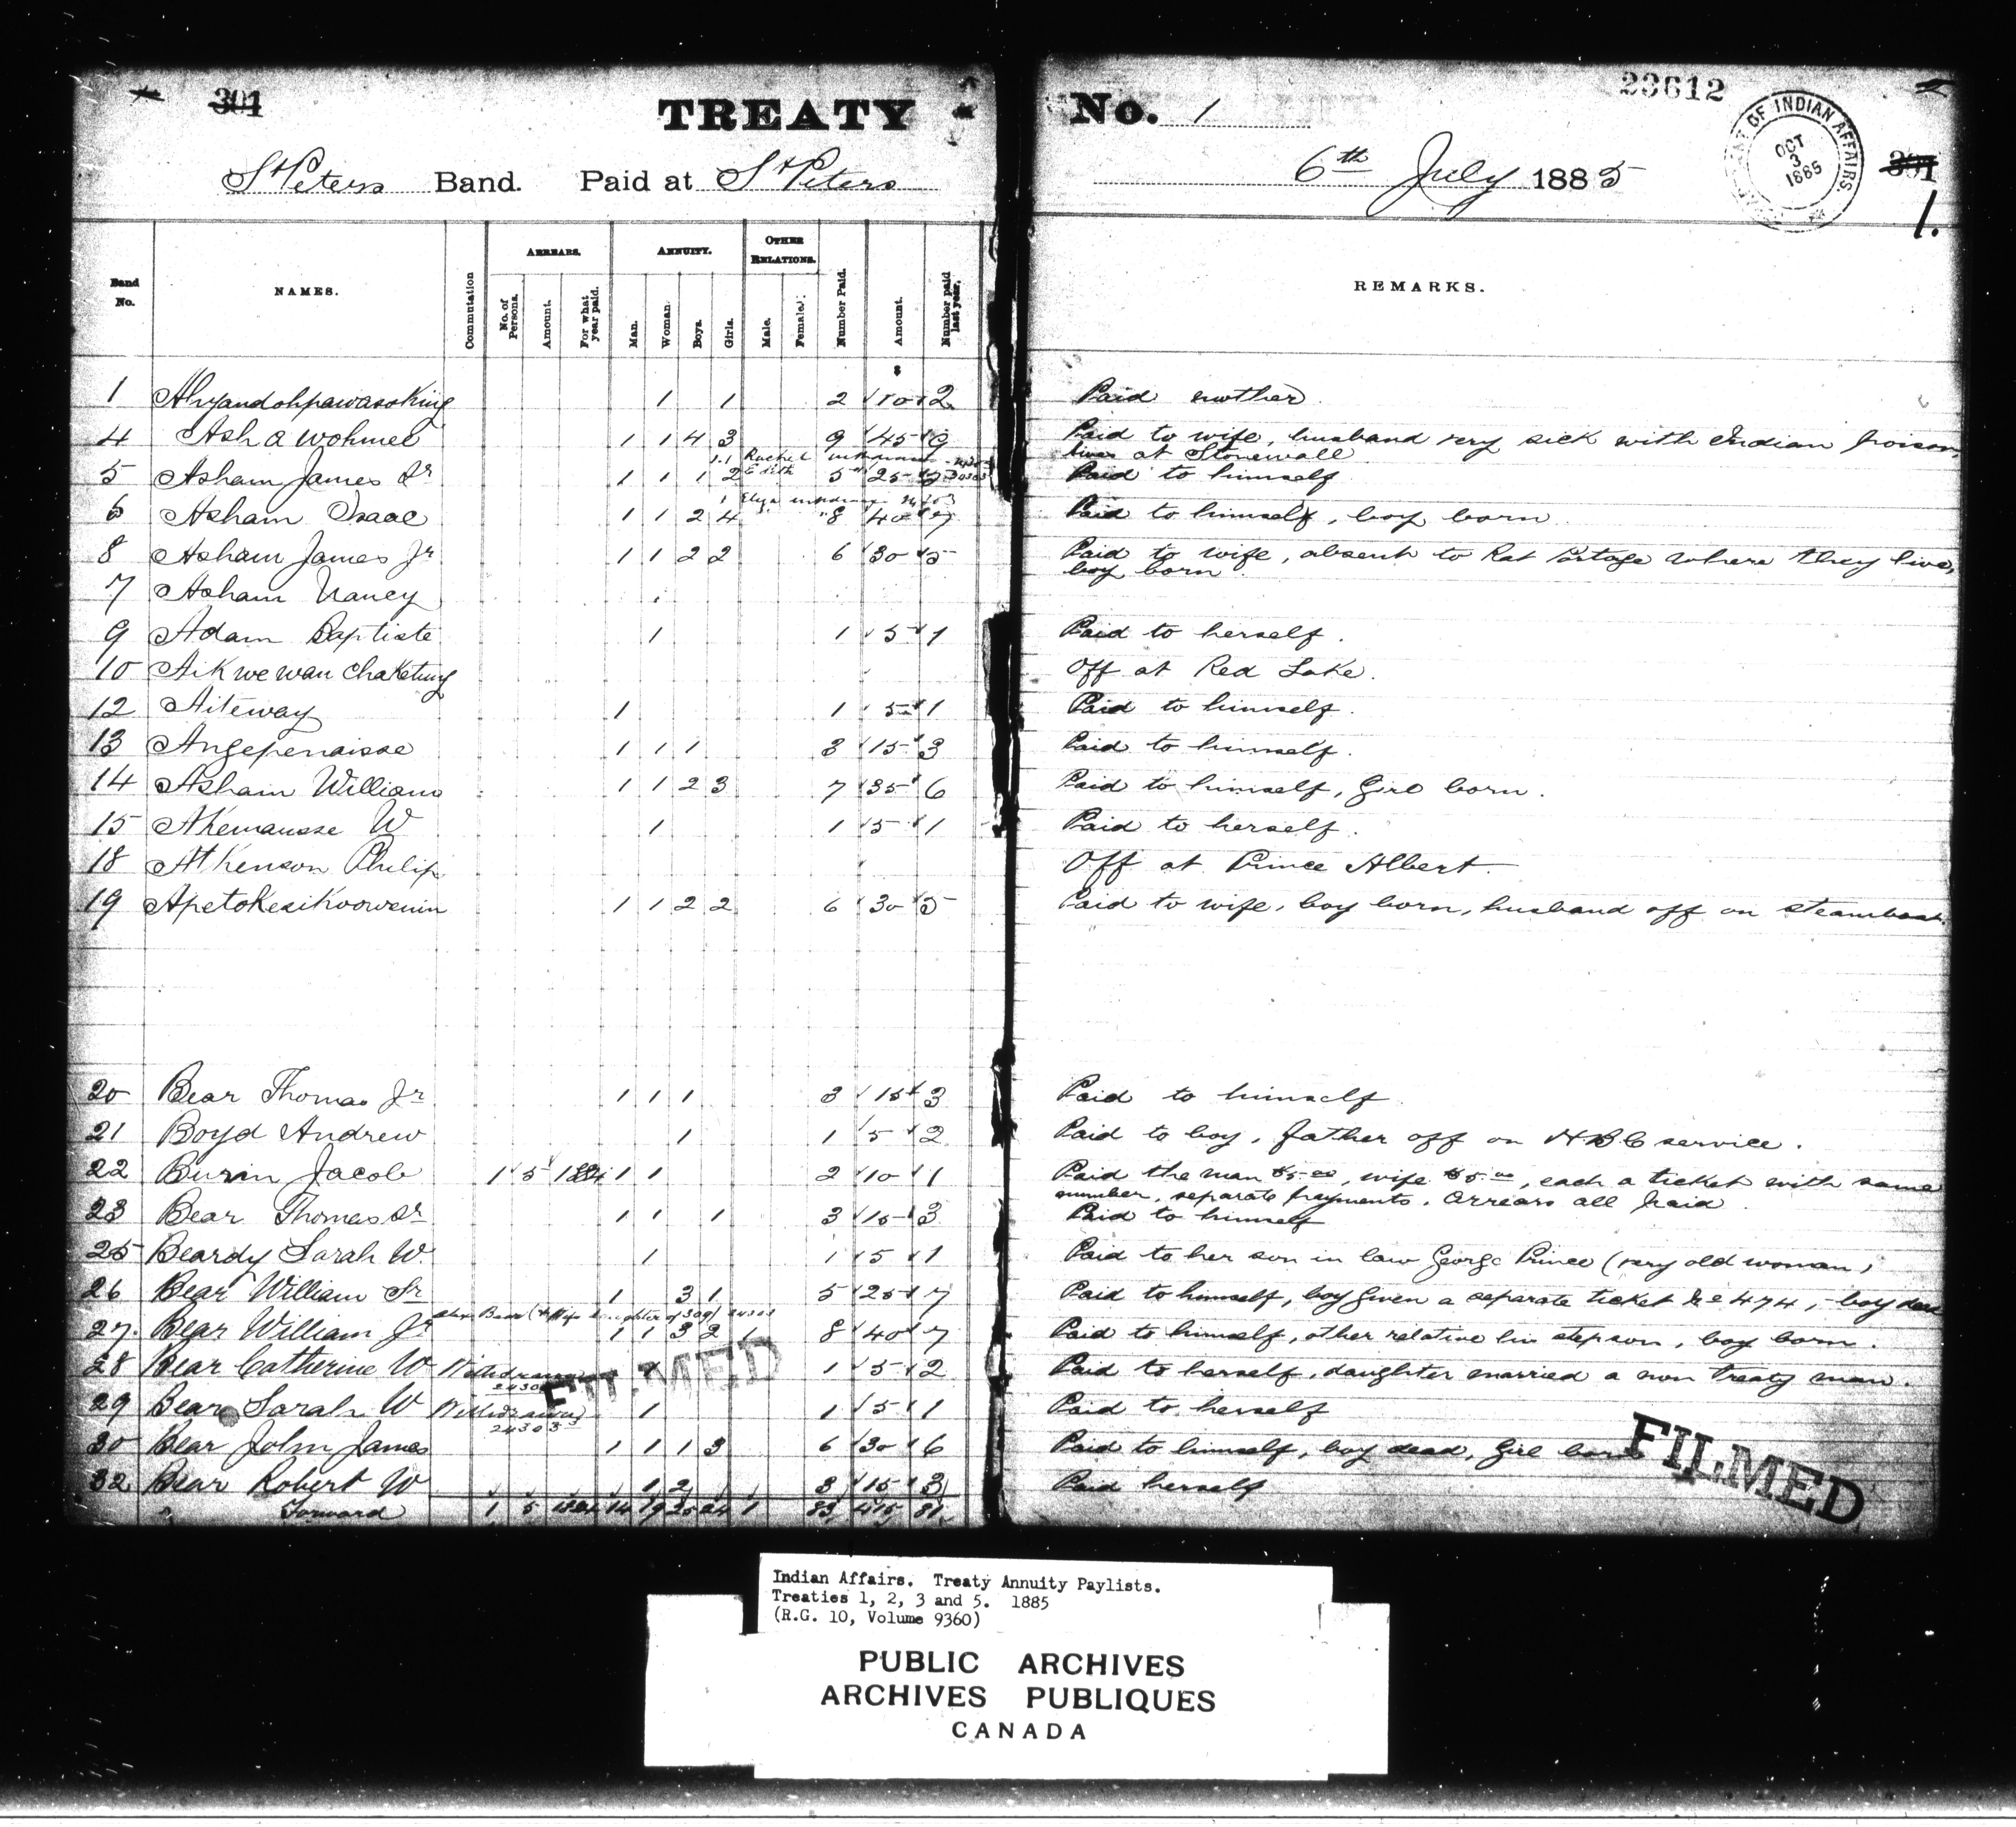 301
TREATY No. 1
23612
DEPARTMENT OF INDIAN AFFAIRS.
OCT
3
1885
301
1.
St Peters Band. Paid at St Peters 6th July 1885
Band No.
NAMES.
Commutation
ARREARS.
No. of Persons.
Amount.
For what year paid.
ANNUITY.
Man.
Woman.
Boys.
Girls.
OTHER RELATIONS.
Male.
Female.
Number Paid.
Amount.
Number paid last year.
REMARKS.
$
1 Ahyandohpawasoking 1 1 2 10 2 Paid mother
4 Ashawohmee 1 1 4 3 9 45 9 Paid to wife, husband very sick with Indian poison,
lives at Stonewall
1.1 Rachel
Edith
5 Asham James Sr 1 1 1 2 5 25 Paid to himself
1 Eliza
6 Asham Isaac 1 1 2 4 8 40 7 Paid to himself, boy born
8 Asham James Jr 1 1 2 2 6 30 5 Paid to wife, absent to Rat Portage where they live,
boy born
7 Asham Nancy
9 Adam Baptiste 1 1 5 1 Paid to herself.
10 Aikwewanchaketung Off at Red Lake.
12 Aiteway 1 1 5 1 Paid to himself.
13 Angepenaisse 1 1 1 3 15 3 Paid to himself.
14 Asham William 1 1 2 3 7 35 6 Paid to himself, Girl born.
15 Akemausse W 1 1 5 1 Paid to herself.
18 Atkenson Philip Off at Prince Albert.
19 Apetokesikoowenin 1 1 2 2 6 30 5 Paid to wife, boy born, husband off on steamboat.
20 Bear Thomas Jr 1 1 1 3 15 3 Paid to himself
21 Boyd Andrew 1 1 5 2 Paid to boy, father off on HBC service.
22 Burin Jacob 1 5 1884 1 1 2 10 1 Paid the man $5.00, wife $5.00, each a ticket with same
number, separate payments. Arrears all paid.
23 Bear Thomas Sr 1 1 1 3 15 3 Paid to himself
25 Beardy Sarah W. 1 1 5 1 Paid to her son in law George Prince (very old woman)
26 Bear William Sr 1 3 1 5 25 7 Paid to himself, boy given a separate ticket No 474, boy dead
Bear (Wife daughter of 309) 24303
27. Bear William Jr 1 1 3 2 1 8 40 7 Paid to himself, other relative his stepson, boy born.
28 Bear Catherine W Withdrawn 1 1 5 2 Paid to herself, daughter married a non treaty man.
29 Bear Sarah W Withdrawn 1 1 5 1 Paid to herself
24303
30 Bear John James 1 1 1 3 6 30 6 Paid to himself, boy dead, Girl born
32 Bear Robert W 1 2 3 15 3 Paid herself
Forward 1 5 1884 14 19 25 24 1 83 415 81
FILMED
FILMED
Indian Affairs. Treaty Annuity Paylists.
Treaties 1, 2, 3 and 5. 1885
(R.G. 10, Volume 9360)
PUBLIC ARCHIVES
ARCHIVES PUBLIQUES
CANADA